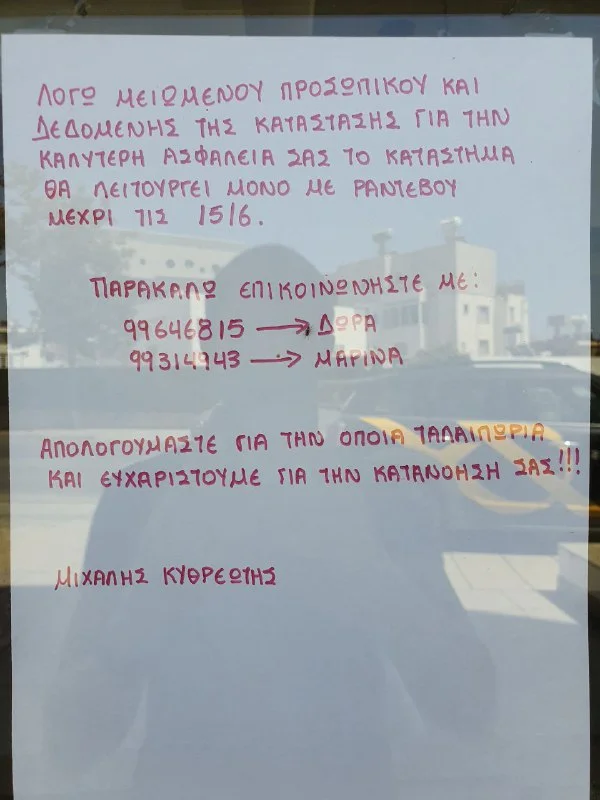 ΛΟΓΩ ΜΕΙΩΜΕΝΟΥ ΠΡΟΣΩΠΙΚΟΥ ΚΑΙ
ΔΕΔΟΜΕΝΗΣ ΤΗΣ ΚΑΤΑΣΤΑΣΗΣ ΓΙΑ ΤΗΝ
ΚΑΛΥΤΕΡΗ ΑΣΦΑΛΕΙΑ ΣΑΣ ΤΟ ΚΑΤΑΣΤΗΜΑ
ΘΑ ΛΕΙΤΟΥΡΓΕΙ ΜΟΝΟ ΜΕ ΡΑΝΤΕΒΟΥ
ΜΕΧΡΙ ΤΙΣ 15/6.
ΠΑΡΑΚΑΛΩ ΕΠΙΚΟΙΝΩΝΗΣΤΕ ΜΕ:
99646815 → ΔΩΡΑ
99314943 → ΜΑΡΙΝΑ
ΑΠΟΛΟΓΟΥΜΑΣΤΕ ΓΙΑ ΤΗΝ ΟΠΟΙΑ ΤΑΛΑΙΠΩΡΙΑ
ΚΑΙ ΕΥΧΑΡΙΣΤΟΥΜΕ ΓΙΑ ΤΗΝ ΚΑΤΑΝΟΗΣΗ ΣΑΣ!!!
ΜΙΧΑΛΗΣ ΚΥΘΡΕΩΤΗΣ